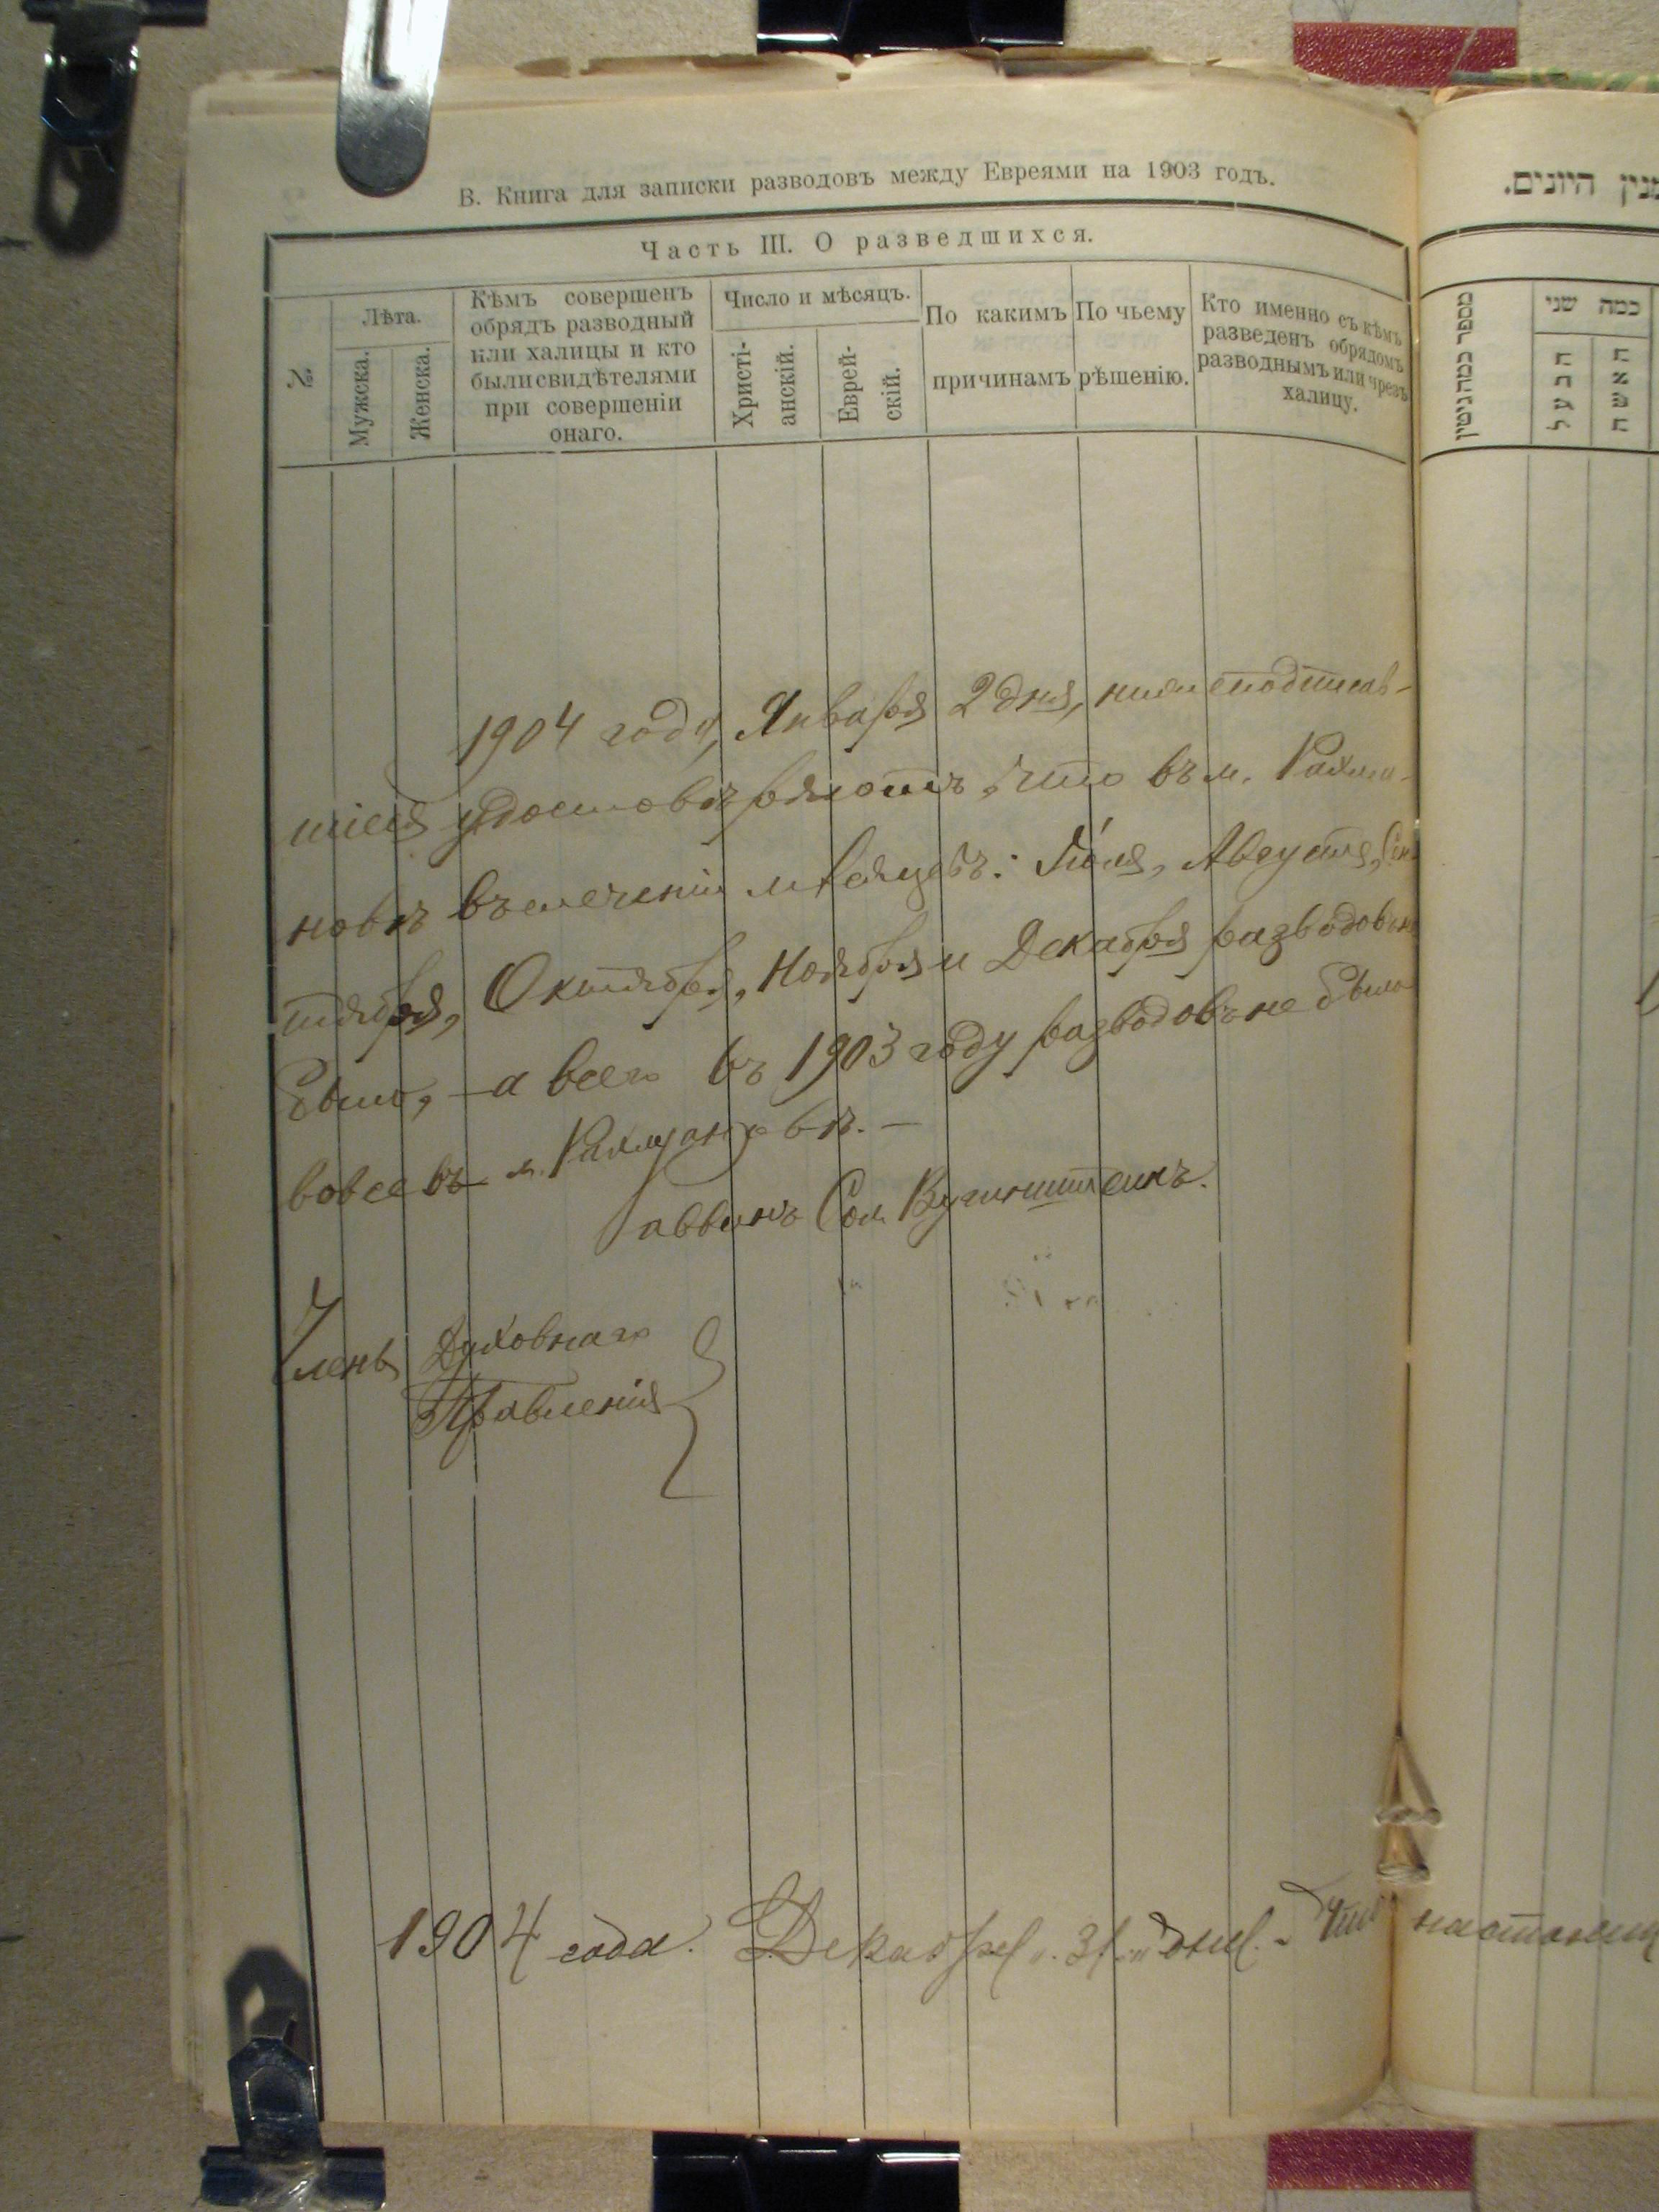 В. Книга для записки разводовъ между Евреями на 1903 годъ.
Часть III. О разведшихся.
№
Лѣта.
Мужска.
Женска.
Кѣмъ совершенъ
обрядъ разводный
или халицы и кто
были свидѣтелями
при совершеніи
онаго.
Число и мѣсяцъ.
Христі-
анскій.
Еврей-
скій.
По какимъ
причинамъ
По чьему
рѣшенію.
Кто именно съ кѣмъ
разведенъ обрядомъ
разводнымъ или чрезъ
халицу.
1904 года, Января 2 дня, нижеподписав-
шіеся удостовѣряютъ, что въ м. Рахма-
новѣ въ теченіи мѣсяцевъ: Іюля, Августа, Сен-
тября, Октября, Ноября и Декабря разводовъ не
было, – а всего въ 1903 году разводовъ не было
вовсе въ м. Рахмановѣ. –
Раввинъ Сол.
Члены Духовнаго
Правленія
1904 года. Декабря "31" дня. – Что
מנין היונים.
מספר כמה גיטין
כמה שני
הבעל
האשה